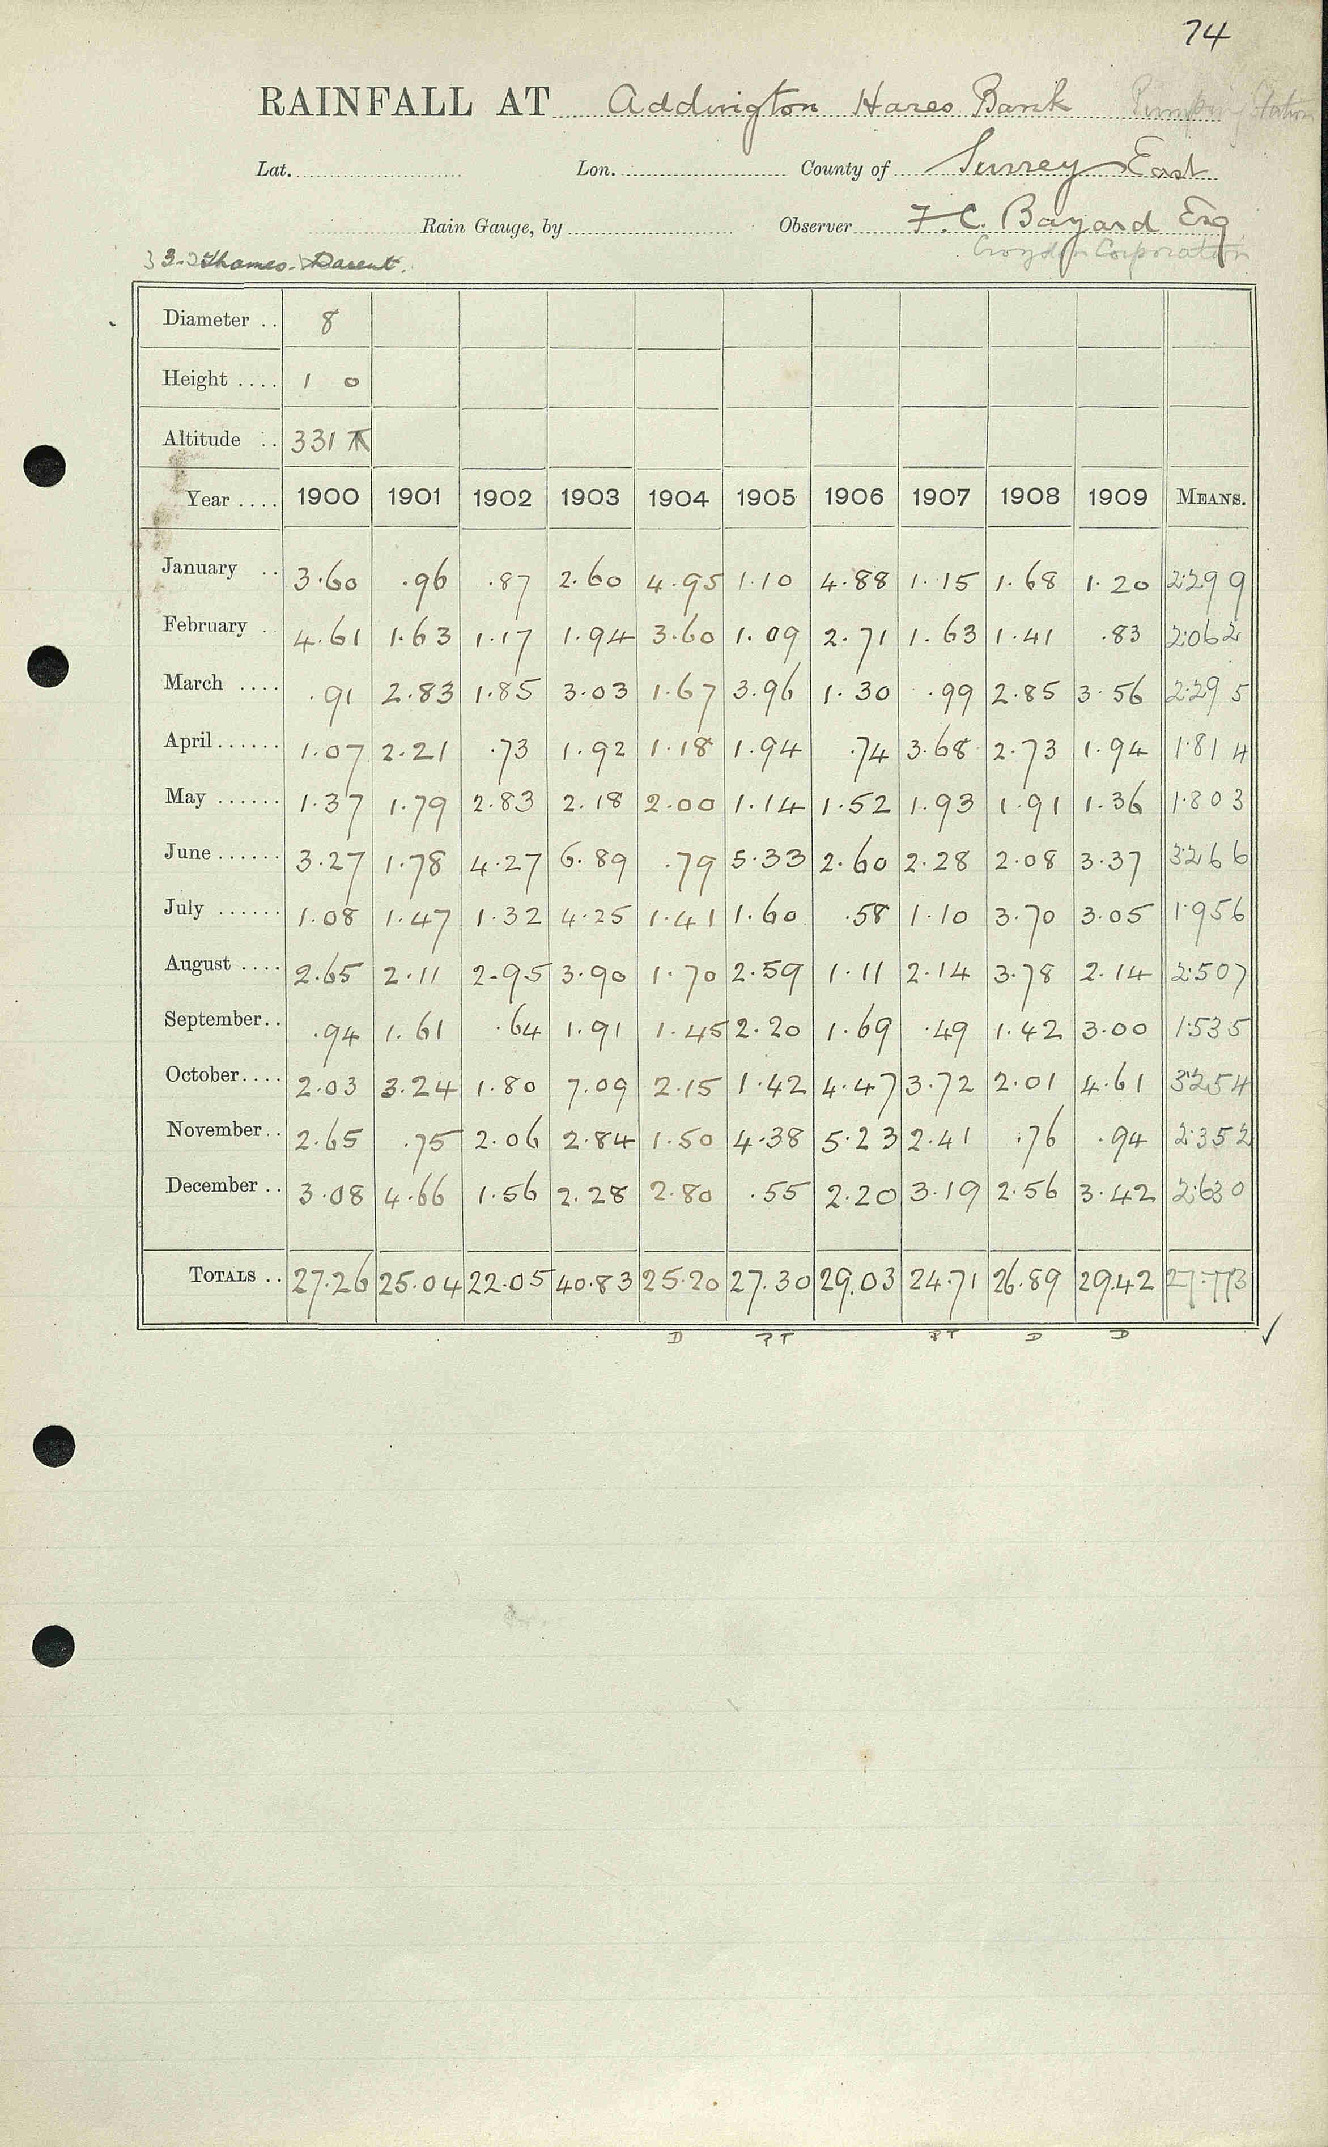 74
RAINFALL AT Addington Hares Bank Pumping Station
Lat. Lon. County of Surrey East
Rain Gauge, by Observer F. C. Bayard Esq
Croydon Corporation
Thames. Darent.
Diameter .. 8
Height .... 1 0
Altitude .. 331
Year .... 1900 1901 1902 1903 1904 1905 1906 1907 1908 1909 MEANS.
January .. 3.60 .96 .87 2.60 4.95 1.10 4.88 1.15 1.68 1.20 2.299
February . 4.61 1.63 1.17 1.94 3.60 1.09 2.71 1.63 1.41 .83 2.062
March .... .91 2.83 1.85 3.03 1.67 3.96 1.30 .99 2.85 3.56 2.295
April...... 1.07 2.21 .73 1.92 1.18 1.94 .74 3.68 2.73 1.94 1.814
May ...... 1.37 1.79 2.83 2.18 2.00 1.14 1.52 1.93 1.91 1.36 1.803
June...... 3.27 1.78 4.27 6.89 .79 5.33 2.60 2.28 2.08 3.37 3.266
July ...... 1.08 1.47 1.32 4.25 1.41 1.60 .58 1.10 3.70 3.05 1.956
August .... 2.65 2.11 2.95 3.90 1.70 2.59 1.11 2.14 3.78 2.14 2.507
September.. .94 1.61 .64 1.91 1.45 2.20 1.69 .49 1.42 3.00 1.535
October.... 2.03 3.24 1.80 7.09 2.15 1.42 4.47 3.72 2.01 4.61 3.254
November.. 2.65 .75 2.06 2.84 1.50 4.38 5.23 2.41 .76 .94 2.352
December .. 3.08 4.66 1.56 2.28 2.80 .55 2.20 3.19 2.56 3.42 2.630
TOTALS .. 27.26 25.04 22.05 40.83 25.20 27.30 29.03 24.71 26.89 29.42 27.773
D PT PT D D ✓